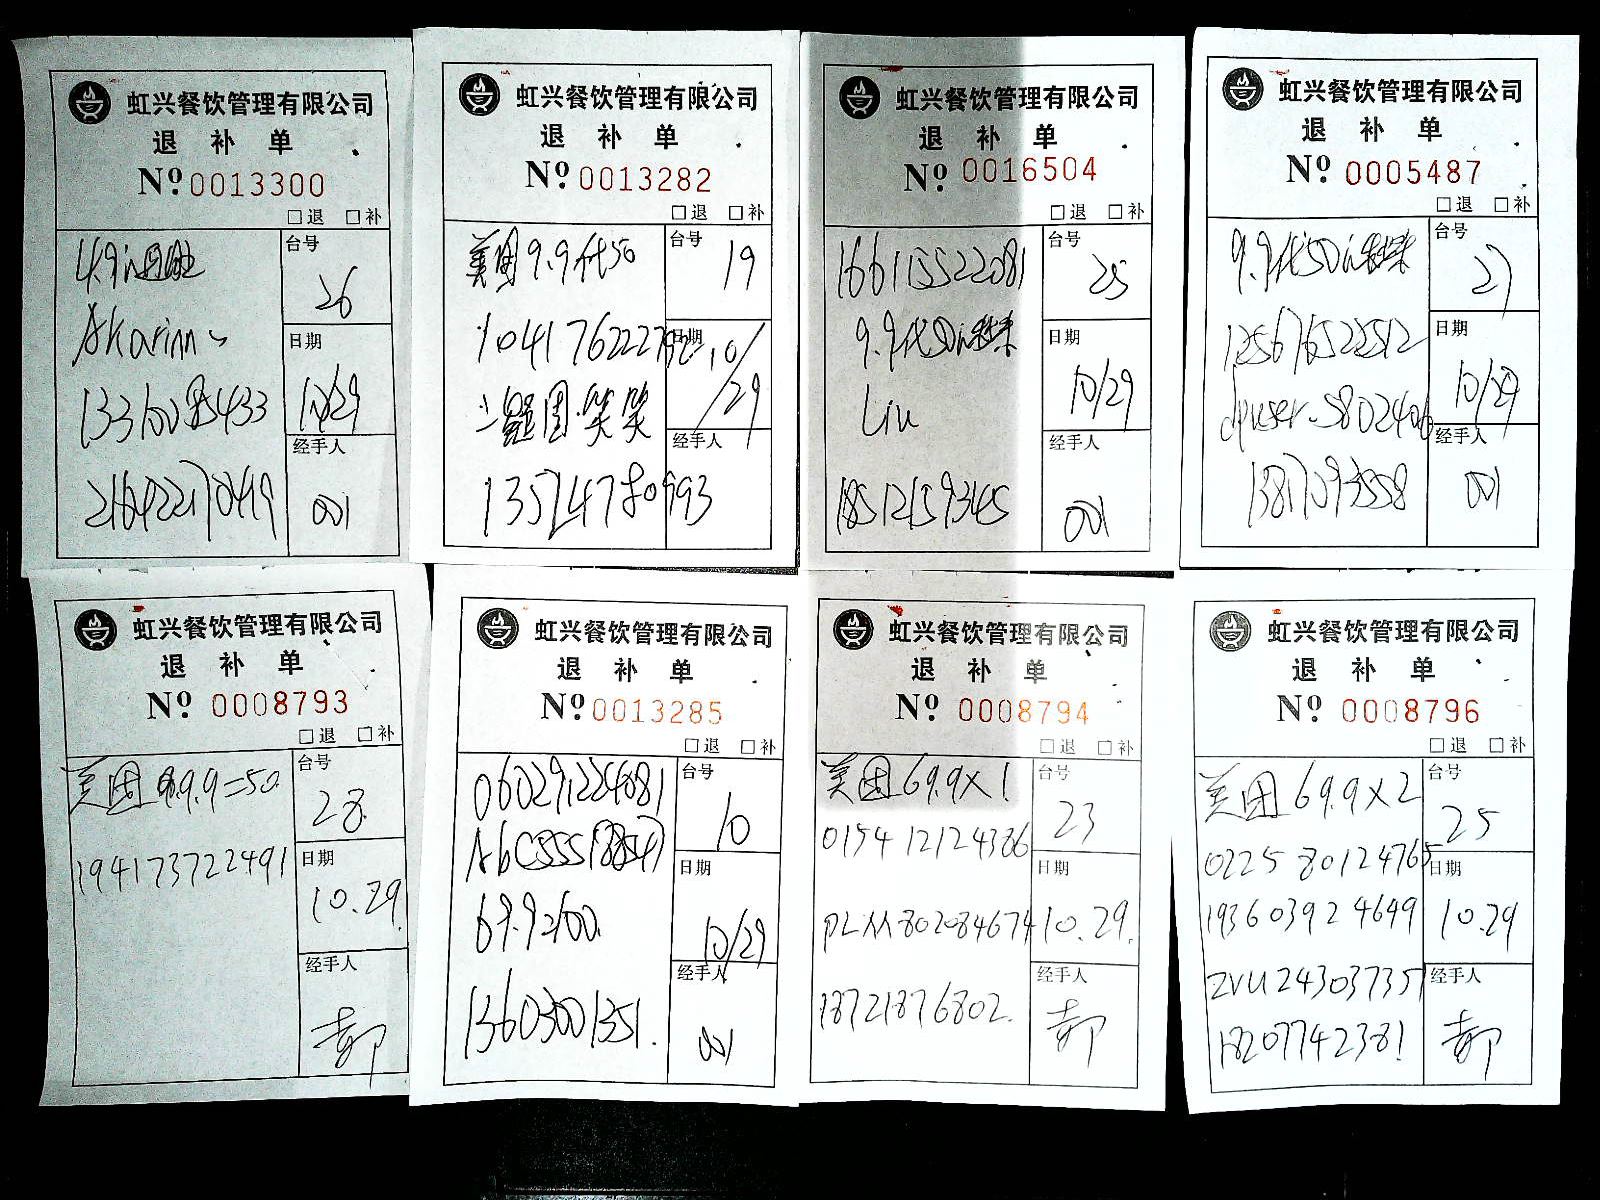 虹兴餐饮管理有限公司
退 补 单
Nº 0013300
□退 □补
台号
26
Akarinn~
日期
10/29
经手人
216422170499
001
虹兴餐饮管理有限公司
退 补 单
Nº 0013282
□退 □补
美团9.9代50
台号
19
日期
10/29
团.笑笑
经手人
虹兴餐饮管理有限公司
退 补 单
Nº 0016504
□退 □补
166115522081
台号
25
9.9代50
日期
10/29
Liu
经手人
18512159345
001
虹兴餐饮管理有限公司
退 补 单
Nº 0005487
□退 □补
9.9代50
台号
27
125676522512
日期
10/29
经手人
13817393558
001
虹兴餐饮管理有限公司
退 补 单
Nº 0008793
□退 □补
美团
9.9=50.
台号
28.
194173722491
日期
10.29
经手人
虹兴餐饮管理有限公司
退 补 单
Nº 0013285
□退 □补
060291224081
台号
10
日期
10/29
经手人
13603001351.
001
虹兴餐饮管理有限公司
退 补 单
Nº 0008794
□退 □补
美团69.9×1
台号
23
0154 12124386
日期
10.29.
经手人
18721876802.
虹兴餐饮管理有限公司
退 补 单
Nº 0008796
□退 □补
美团69.9×2
台号
25
0225 80124765
日期
1936 0392 4649
10.29
经手人
ZVU243037351
18207742381